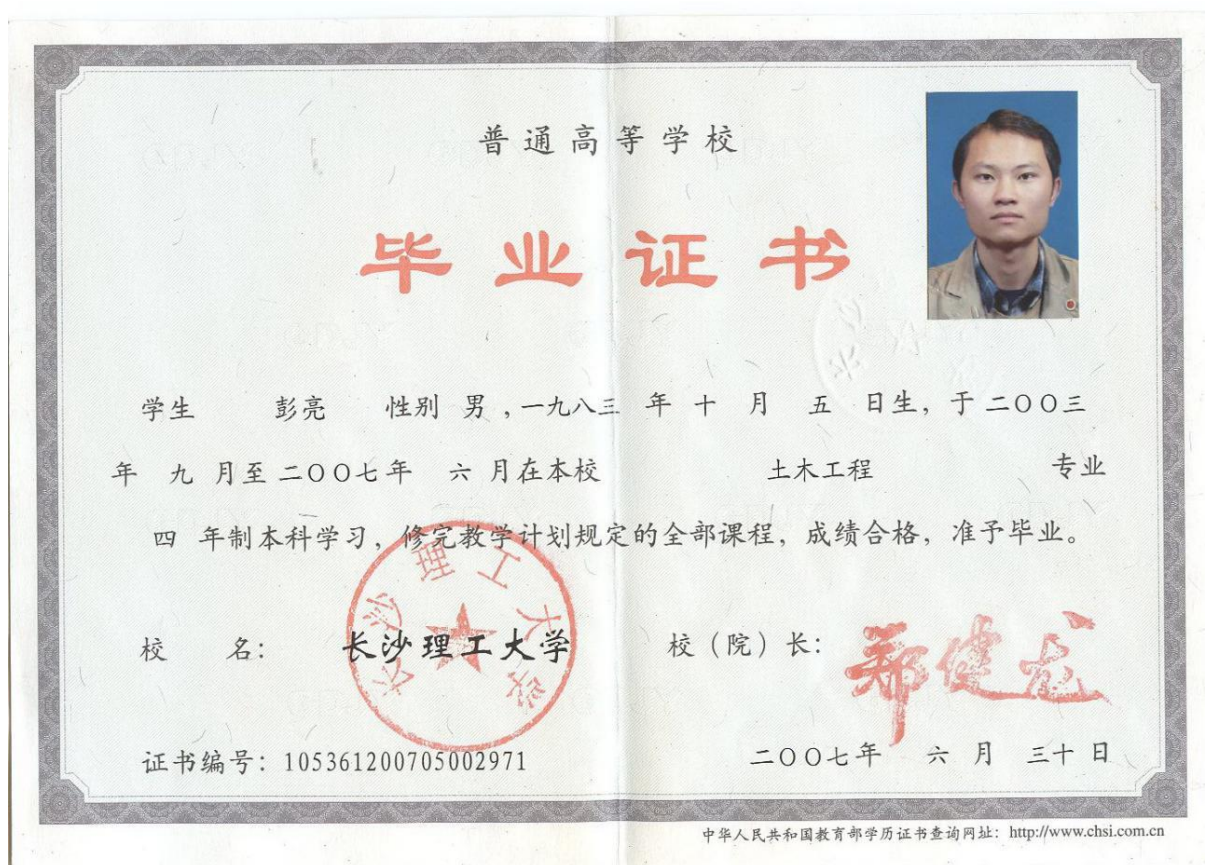 普通高等学校
毕业证书
学生 彭亮 性别 男，一九八三 年 十 月 五 日生，于 二〇〇三
年 九 月至 二〇〇七年 六 月在本校 土木工程 专业
四 年制本科学习，修完教学计划规定的全部课程，成绩合格，准予毕业。
长沙理工大学
校 名： 长沙理工大学 校（院）长： 郑健龙
证书编号：105361200705002971 二〇〇七年 六 月 三十 日
中华人民共和国教育部学历证书查询网址：http://www.chsi.com.cn